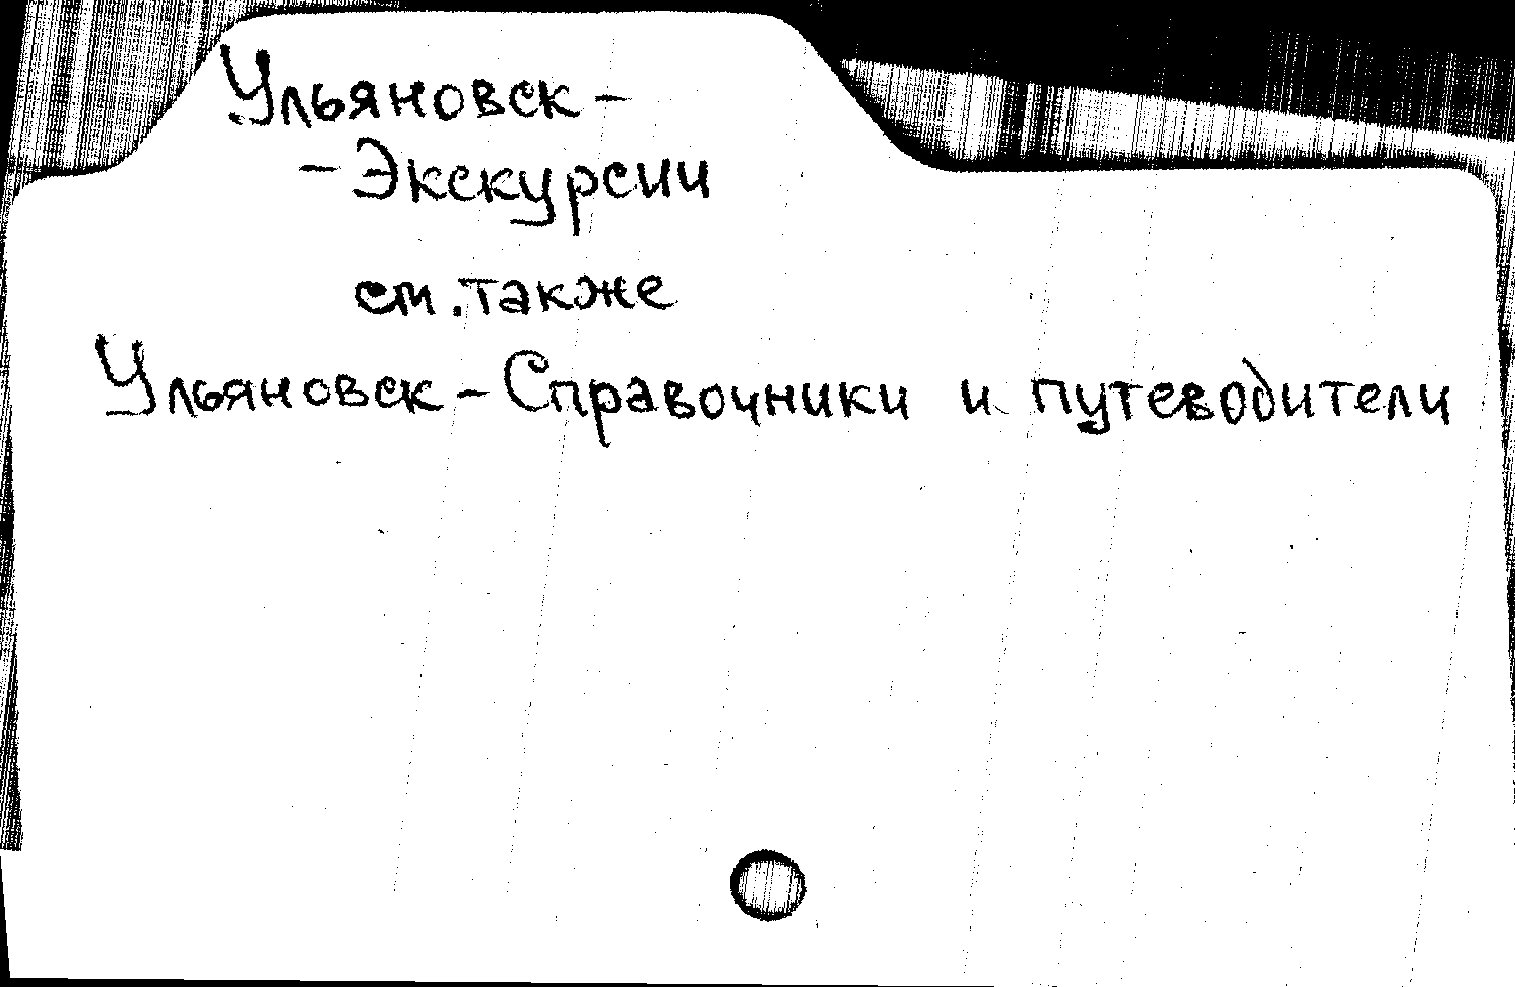 Ульяновск -
- Экскурсии
см. также
Ульяновск - Справочники и путеводители